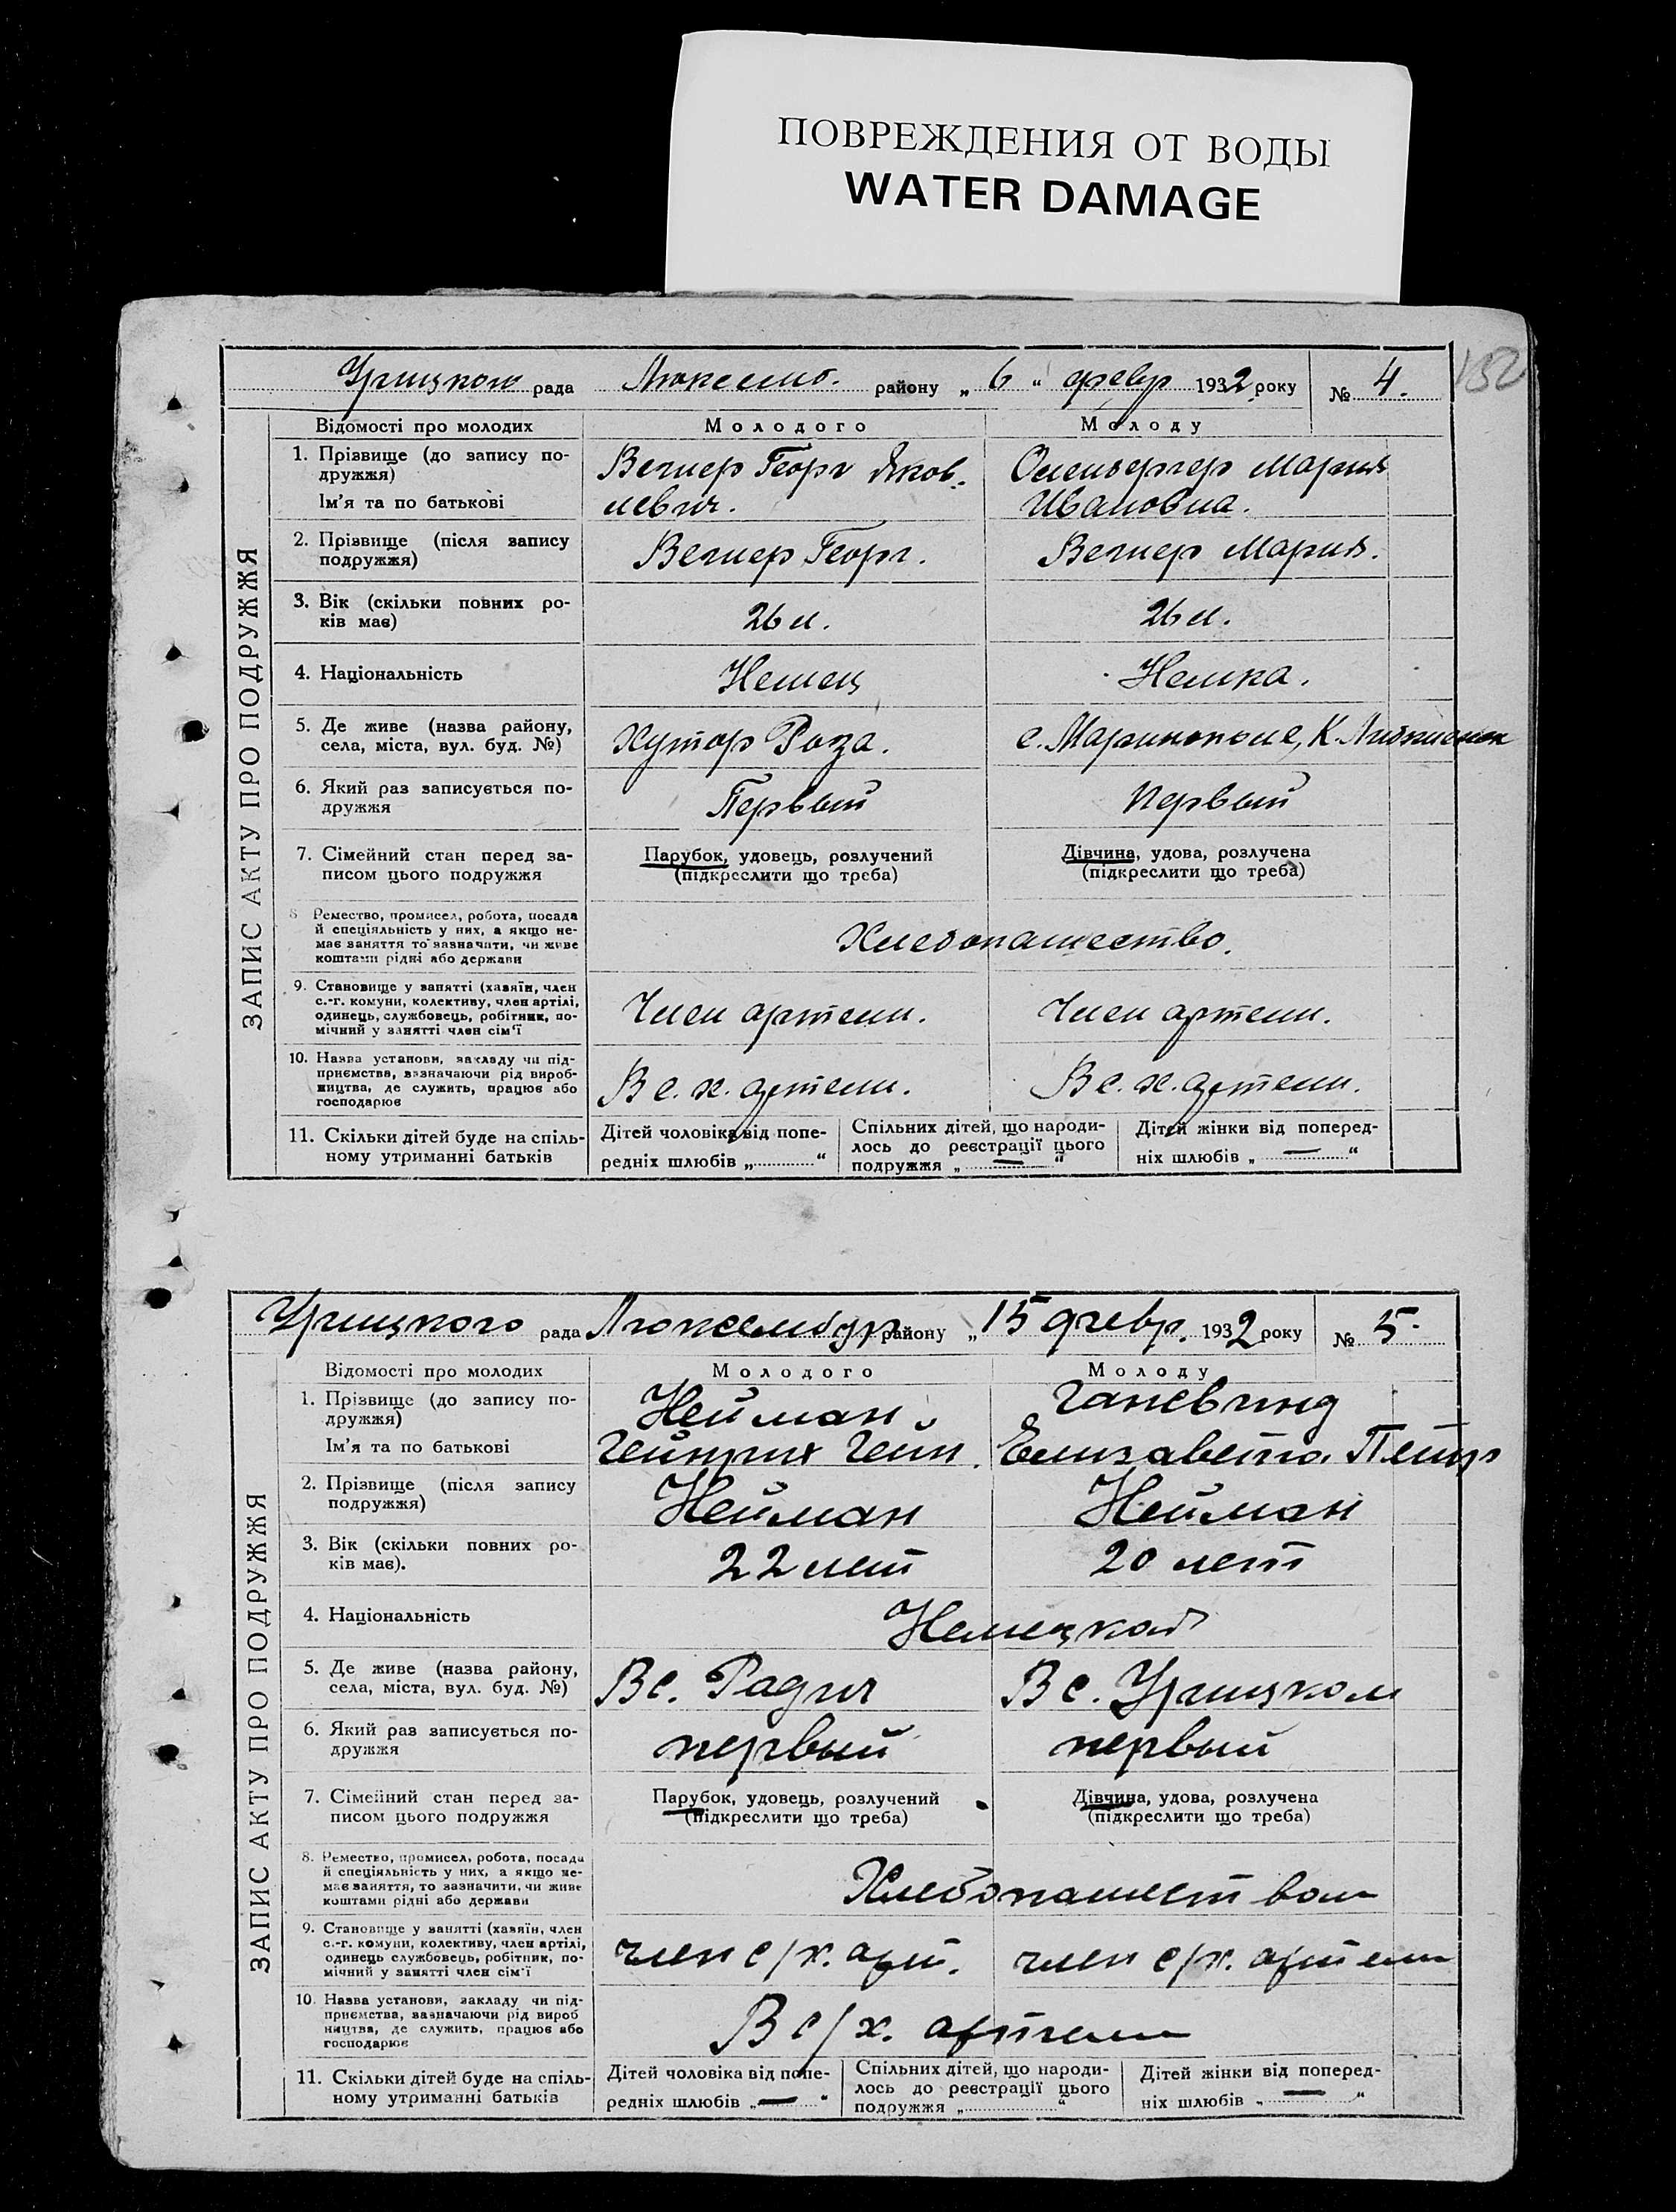 ПОВРЕЖДЕНИЯ ОТ ВОДЫ
WATER DAMAGE
132
Урицкого рада Люксемб. району „6“ февр 1932 року № 4.
ЗАПИС АКТУ ПРО ПОДРУЖЖЯ
Відомості про молодих Молодого Молоду
1. Прізвище (до запису по-
дружжя)
Ім’я та по батькові
Вегнер Георг Яков-
левич.
Мария
Ивановна.
2. Прізвище (після запису
подружжя)
Вегнер Георг. Вегнер Мария.
3. Вік (скільки повних ро-
ків має)
26 л. 26 л.
4. Національність Немец Немка.
5. Де живе (назва району,
села, міста, вул. буд. №)
Хутор Роза. с. Мариинополе, К.
6. Який раз записується по-
дружжя
Первый Первый
7. Сімейний стан перед за-
писом цього подружжя
Парубок, удовець, розлучений
(підкреслити що треба)
Дівчина, удова, розлучена
(підкреслити що треба)
8 Ремество, промисел, робота, посада
й спеціяльність у них, а якщо не-
має заняття то зазначити, чи живе
коштами рідні або держави
Хлебопашество.
9. Становище у занятті (хазяїн, член
с.-г. комуни, колективу, член артілі,
одинець, службовець, робітник, по-
мічний у занятті член сім’ї
Член артели. Член артели.
10. Назва установи, закладу чи під-
приємства, взначаючи рід вироб-
ництва, де служить, працює або
господарює
В с. х. артели. В с. х. артели.
11. Скільки дітей буде на спіль-
ному утриманні батьків
Дітей чоловіка від попе-
редніх шлюбів „ “
Спільних дітей, що народи-
лось до реєстрації цього
подружжя „ — “
Дітей жінки від поперед-
ніх шлюбів „ — “
Урицкого рада Люксембур району „15 февр. 1932 року № 5
ЗАПИС АКТУ ПРО ПОДРУЖЖЯ
Відомості про молодих Молодого Молоду
1. Прізвище (до запису по-
дружжя)
Ім’я та по батькові
Нейман
Гейнрих Гейн.
Елизавета Петр
2. Прізвище (після запису
подружжя)
Нейман Нейман
3. Вік (скільки повних ро-
ків має).
22 лет 20 лет
4. Національність Немецкой
5. Де живе (назва району,
села, міста, вул. буд. №)
В с. Радич В с. Урицком
6. Який раз записується по-
дружжя
первый первый
7. Сімейний стан перед за-
писом цього подружжя
Парубок, удовець, розлучений
(підкреслити що треба)
Дівчина, удова, розлучена
(підкреслити що треба)
8. Ремество, промисел, робота, посада
й спеціяльність у них, а якщо не-
має заняття, то зазначити, чи живе
коштами рідні або держави
Хлебопашеством
9. Становище у занятті (хазяїн, член
с.-г. комуни, колективу, член артілі,
одинець службовець, робітник, по-
мічний у занятті член сім’ї
член с/х. арт. член с/х. артели
10. Назва установи, закладу чи під-
приємства, вазначаючи рід вироб
ництва, де служить, працює або
господарює
В с/х. артели
11. Скільки дітей буде на спіль-
ному утриманні батьків
Дітей чоловіка від попе-
редніх шлюбів „ — “
Спільних дітей, що народи-
лось до реєстрації цього
подружжя „ “
Дітей жінки від поперед-
ніх шлюбів „ — “